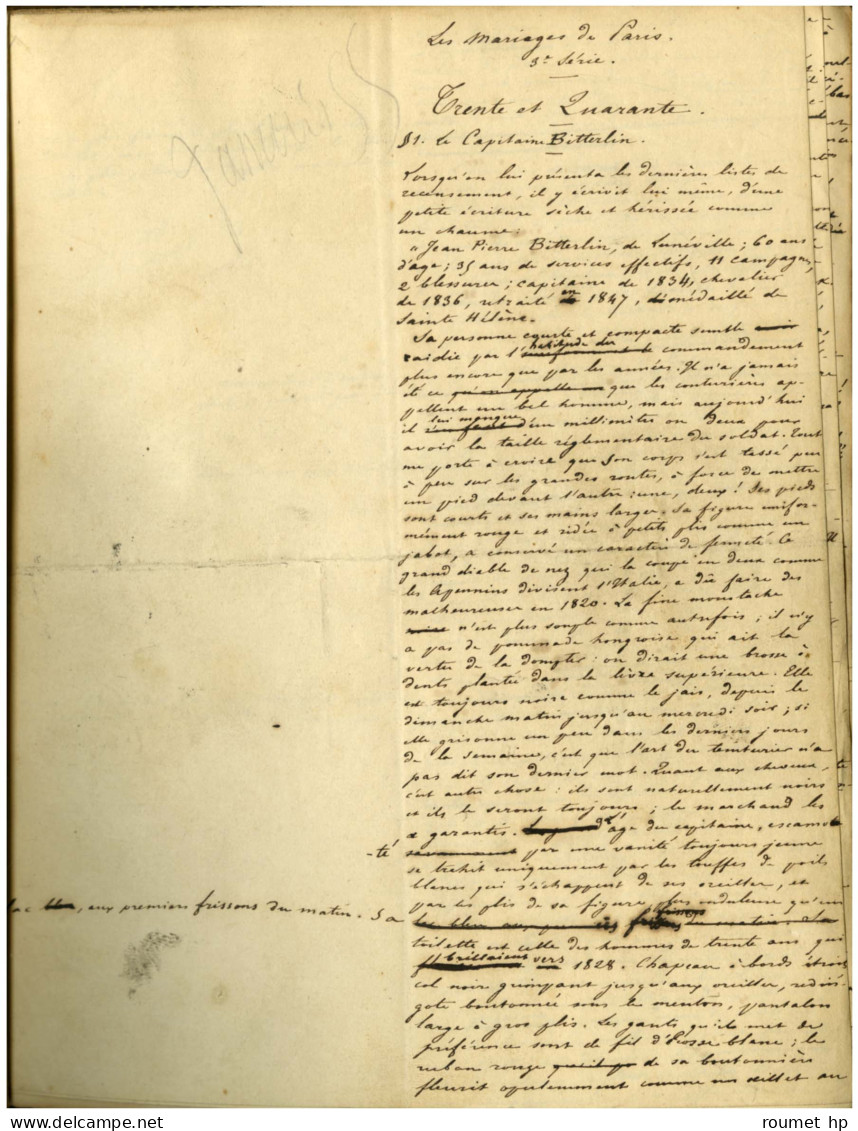 Les Mariages de Paris.
3e Série.
Trente et Quarante.
§1. Le Capitaine Bitterlin.
Lorsqu'on lui présenta les dernières listes de
recensement, il y écrivit lui même, d'une
petite écriture sèche et hérissée comme
un chaume :
« Jean Pierre Bitterlin, de Lunéville ; 60 ans
d'age ; 35 ans de services effectifs, 11 campagnes,
2 blessures ; capitaine de 1834, chevalier
de 1836, retraité en 1847, médaillé de
Sainte Hélène.
Sa personne courte et compacte semble
raidie par l'habitude du commandement
plus encore que par les années. Il n'a jamais
été ce qu'on appelle un que les couturières ap-
pellent un bel homme, mais aujourd'hui
il lui manque d'un millimètre ou deux pour
avoir la taille réglementaire du soldat. Tout
me porte à croire que son corps s'est tassé peu
à peu sur les grandes routes, à force de mettre
un pied devant l'autre : une, deux ! Ses pieds
sont courts et ses mains larges. Sa figure unifor-
mément rouge et ridée à petits plis comme un
jabot, a conservé un caractère de fermeté. Ce
grand diable de nez qui la coupe en deux comme
les Apennins divisent l'Italie, a dû faire des
malheureuses en 1820. La fine moustache
noire n'est plus souple comme autrefois ; il n'y
a pas de pommade hongroise qui ait la
vertu de la dompter : on dirait une brosse à
dents plantée dans la lèvre supérieure. Elle
est toujours noire comme le jais, depuis le
dimanche matin jusqu'au mercredi soir ; si
elle grisonne un peu dans les derniers jours
de la semaine, c'est que l'art du teinturier n'a
pas dit son dernier mot. Quant aux cheveux,
c'est autre chose : ils sont naturellement noirs
et ils le seront toujours ; le marchand les
a garantis. L'âge du capitaine, escamo-
-té par une vanité toujours jeune
se trahit uniquement par les touffes de poils
blancs qui s'échappent de ses oreilles, et
par les plis de sa figure, plus onduleuse qu'un
lac, aux premiers frissons du matin. Sa
toilette est celle des hommes de trente ans qui
brillaient vers 1828. Chapeau à bords étroits
col noir grimpant jusqu'aux oreilles, redin-
gote boutonnée sous le menton, pantalon
large à gros plis. Les gants qu'il met de
préférence sont de fil d'Ecosse blanc ; le
ruban rouge de sa boutonnière
fleurit opulemment comme un œillet au
roumet hp